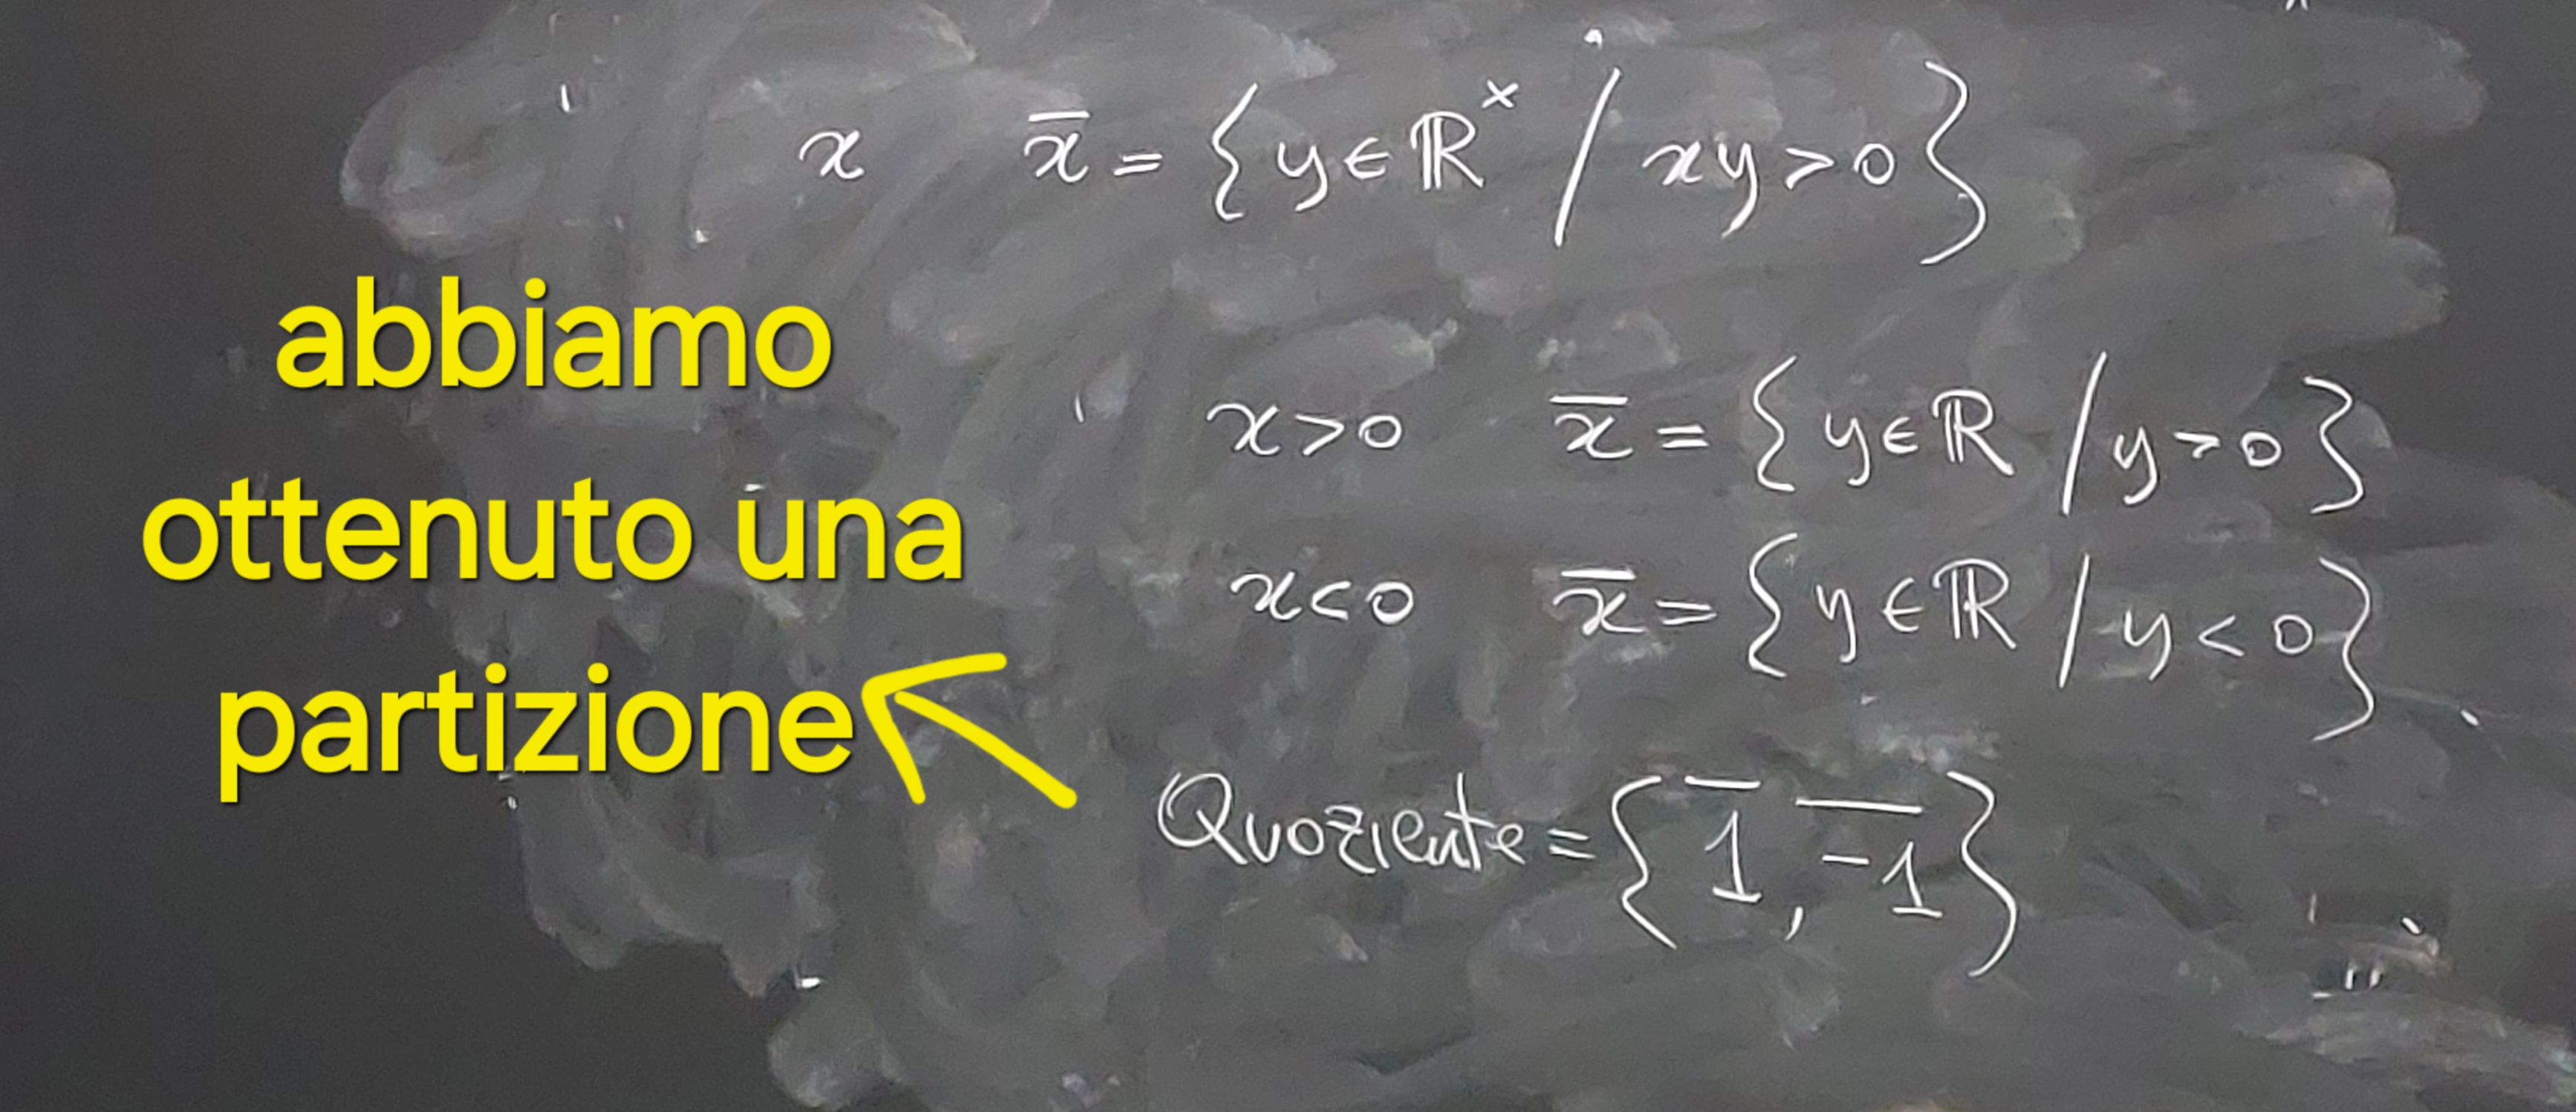 x x̄ = {y ∈ ℝ^× / xy > 0}
abbiamo
ottenuto una
partizione
x > 0 x̄ = {y ∈ ℝ / y > 0}
x < 0 x̄ = {y ∈ ℝ / y < 0}
Quoziente = {1̅, -̅1̅}